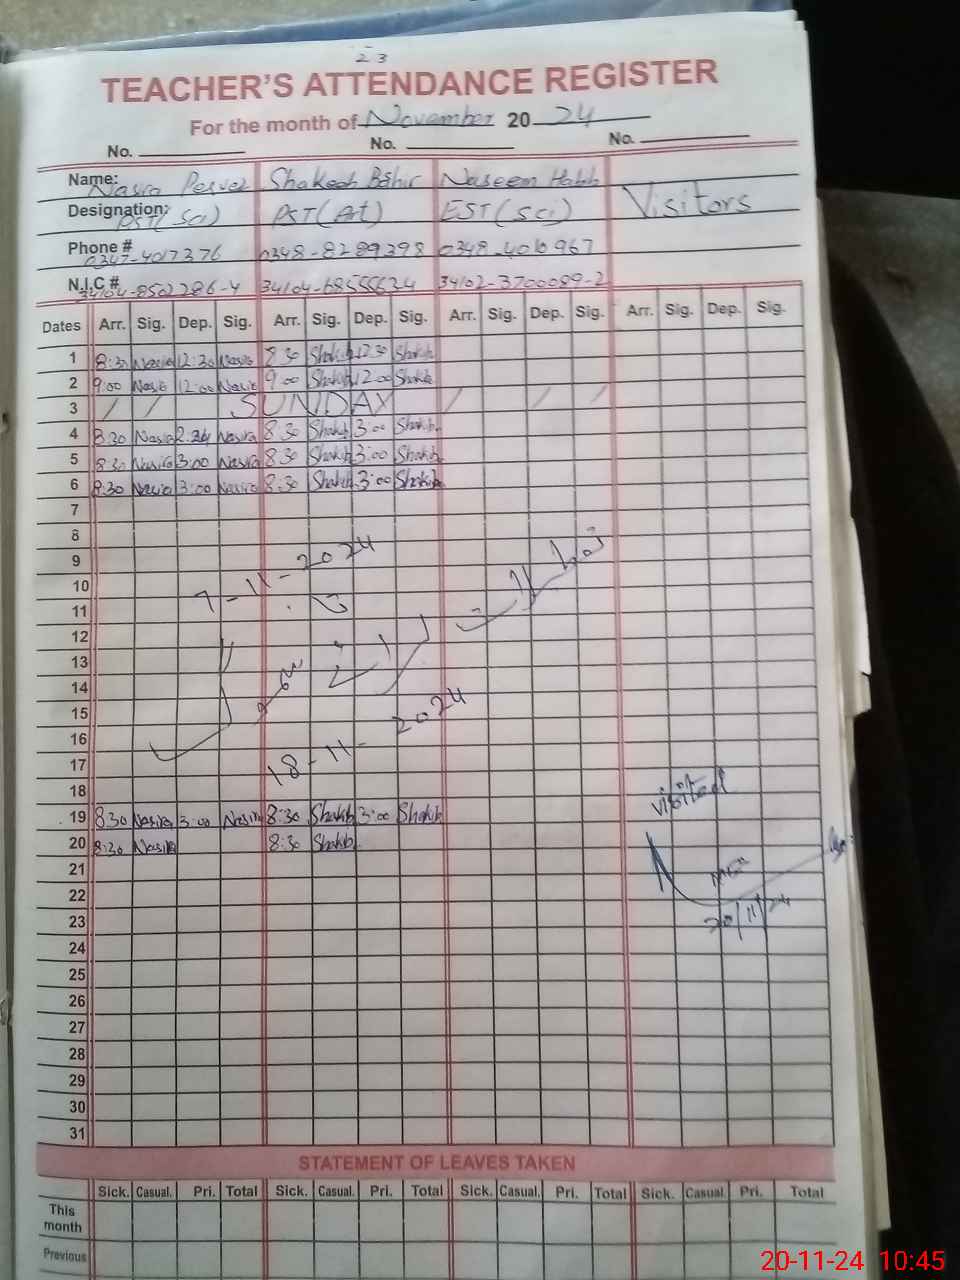 23
TEACHER'S ATTENDANCE REGISTER
For the month of November 2024
No. No. No.
Name: Nasra Pervez Shakeeb Bshir Naseem Habib Visitors
Designation: PST(Sci) PST(Art) EST(Sci)
Phone # 0347-4017376 0348-8289398 0348-4010967
N.I.C # 34104-8502286-4 34104-68555634 34102-3700089-2
Dates Arr. Sig. Dep. Sig. Arr. Sig. Dep. Sig. Arr. Sig. Dep. Sig. Arr. Sig. Dep. Sig.
1 8:30 Nasira 12:30 Nasira 8:30 Shakib 12:30 Shakib
2 9:00 Nasira 12:00 Nasira 9:00 Shakib 12:00 Shakib
3 SUNDAY
4 8:30 Nasira 2:24 Nasira 8:30 Shakib 3:00 Shakib
5 8:30 Nasira 3:00 Nasira 8:30 Shakib 3:00 Shakib
6 8:30 Nasira 3:00 Nasira 8:30 Shakib 3:00 Shakib
7
8
9
7-11-2024
10
11
12
13
14
15
16
18-11-2024
17
18
visited
19 8:30 Nasira 3:00 Nasira 8:30 Shakib 3:00 Shakib
20 8:30 Nasira 8:30 Shakib
21
22
20/11/24
23
24
25
26
27
28
29
30
31
STATEMENT OF LEAVES TAKEN
Sick. Casual. Pri. Total Sick. Casual. Pri. Total Sick. Casual. Pri. Total Sick. Casual. Pri. Total
This
month
Previous
20-11-24 10:45